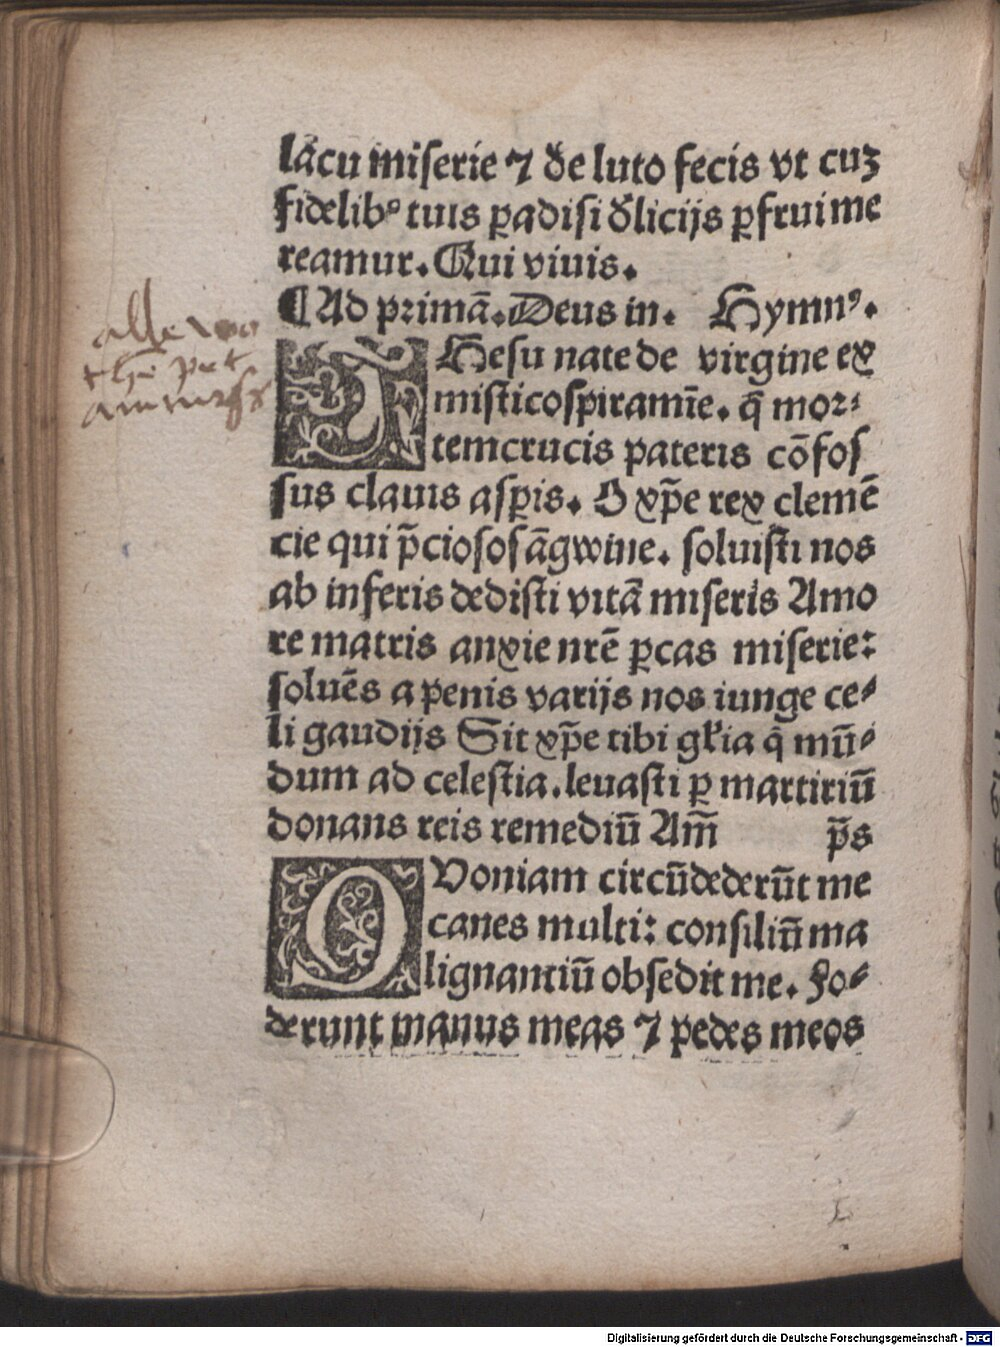 lacu miserie ⁊ de luto fecis vt cuʒ
fidelibꝰ tuis ꝑadisi dʼlicijs ꝑfrui me
reamur. Qui viuis.
¶ Ad primã. Deus in. Hymnꝰ.
IHesu nate de virgine ex
mistico spiramīe. q̄ mor⸗
tem crucis pateris cõfos
sus clauis asꝑis. O xp̄e rex clemē
cie qui p̄cioso sãgwine. soluisti nos
ab inferis dedisti vitã miseris Amo
re matris anxie nr̄ē ꝑcas miserie:
soluēs a penis varijs nos iunge ce⸗
li gaudijs Sit xp̄e tibi gl'ia q̄ mū⸗
dum ad celestia. leuasti ꝑ martiriū
donans reis remediū Am̄ p̄s
QVoniam circūdederūt me
canes multi: consiliū ma
lignantiū obsedit me. Fo⸗
derunt manus meas ⁊ pedes meos
Digitalisierung gefördert durch die Deutsche Forschungsgemeinschaft - DFG